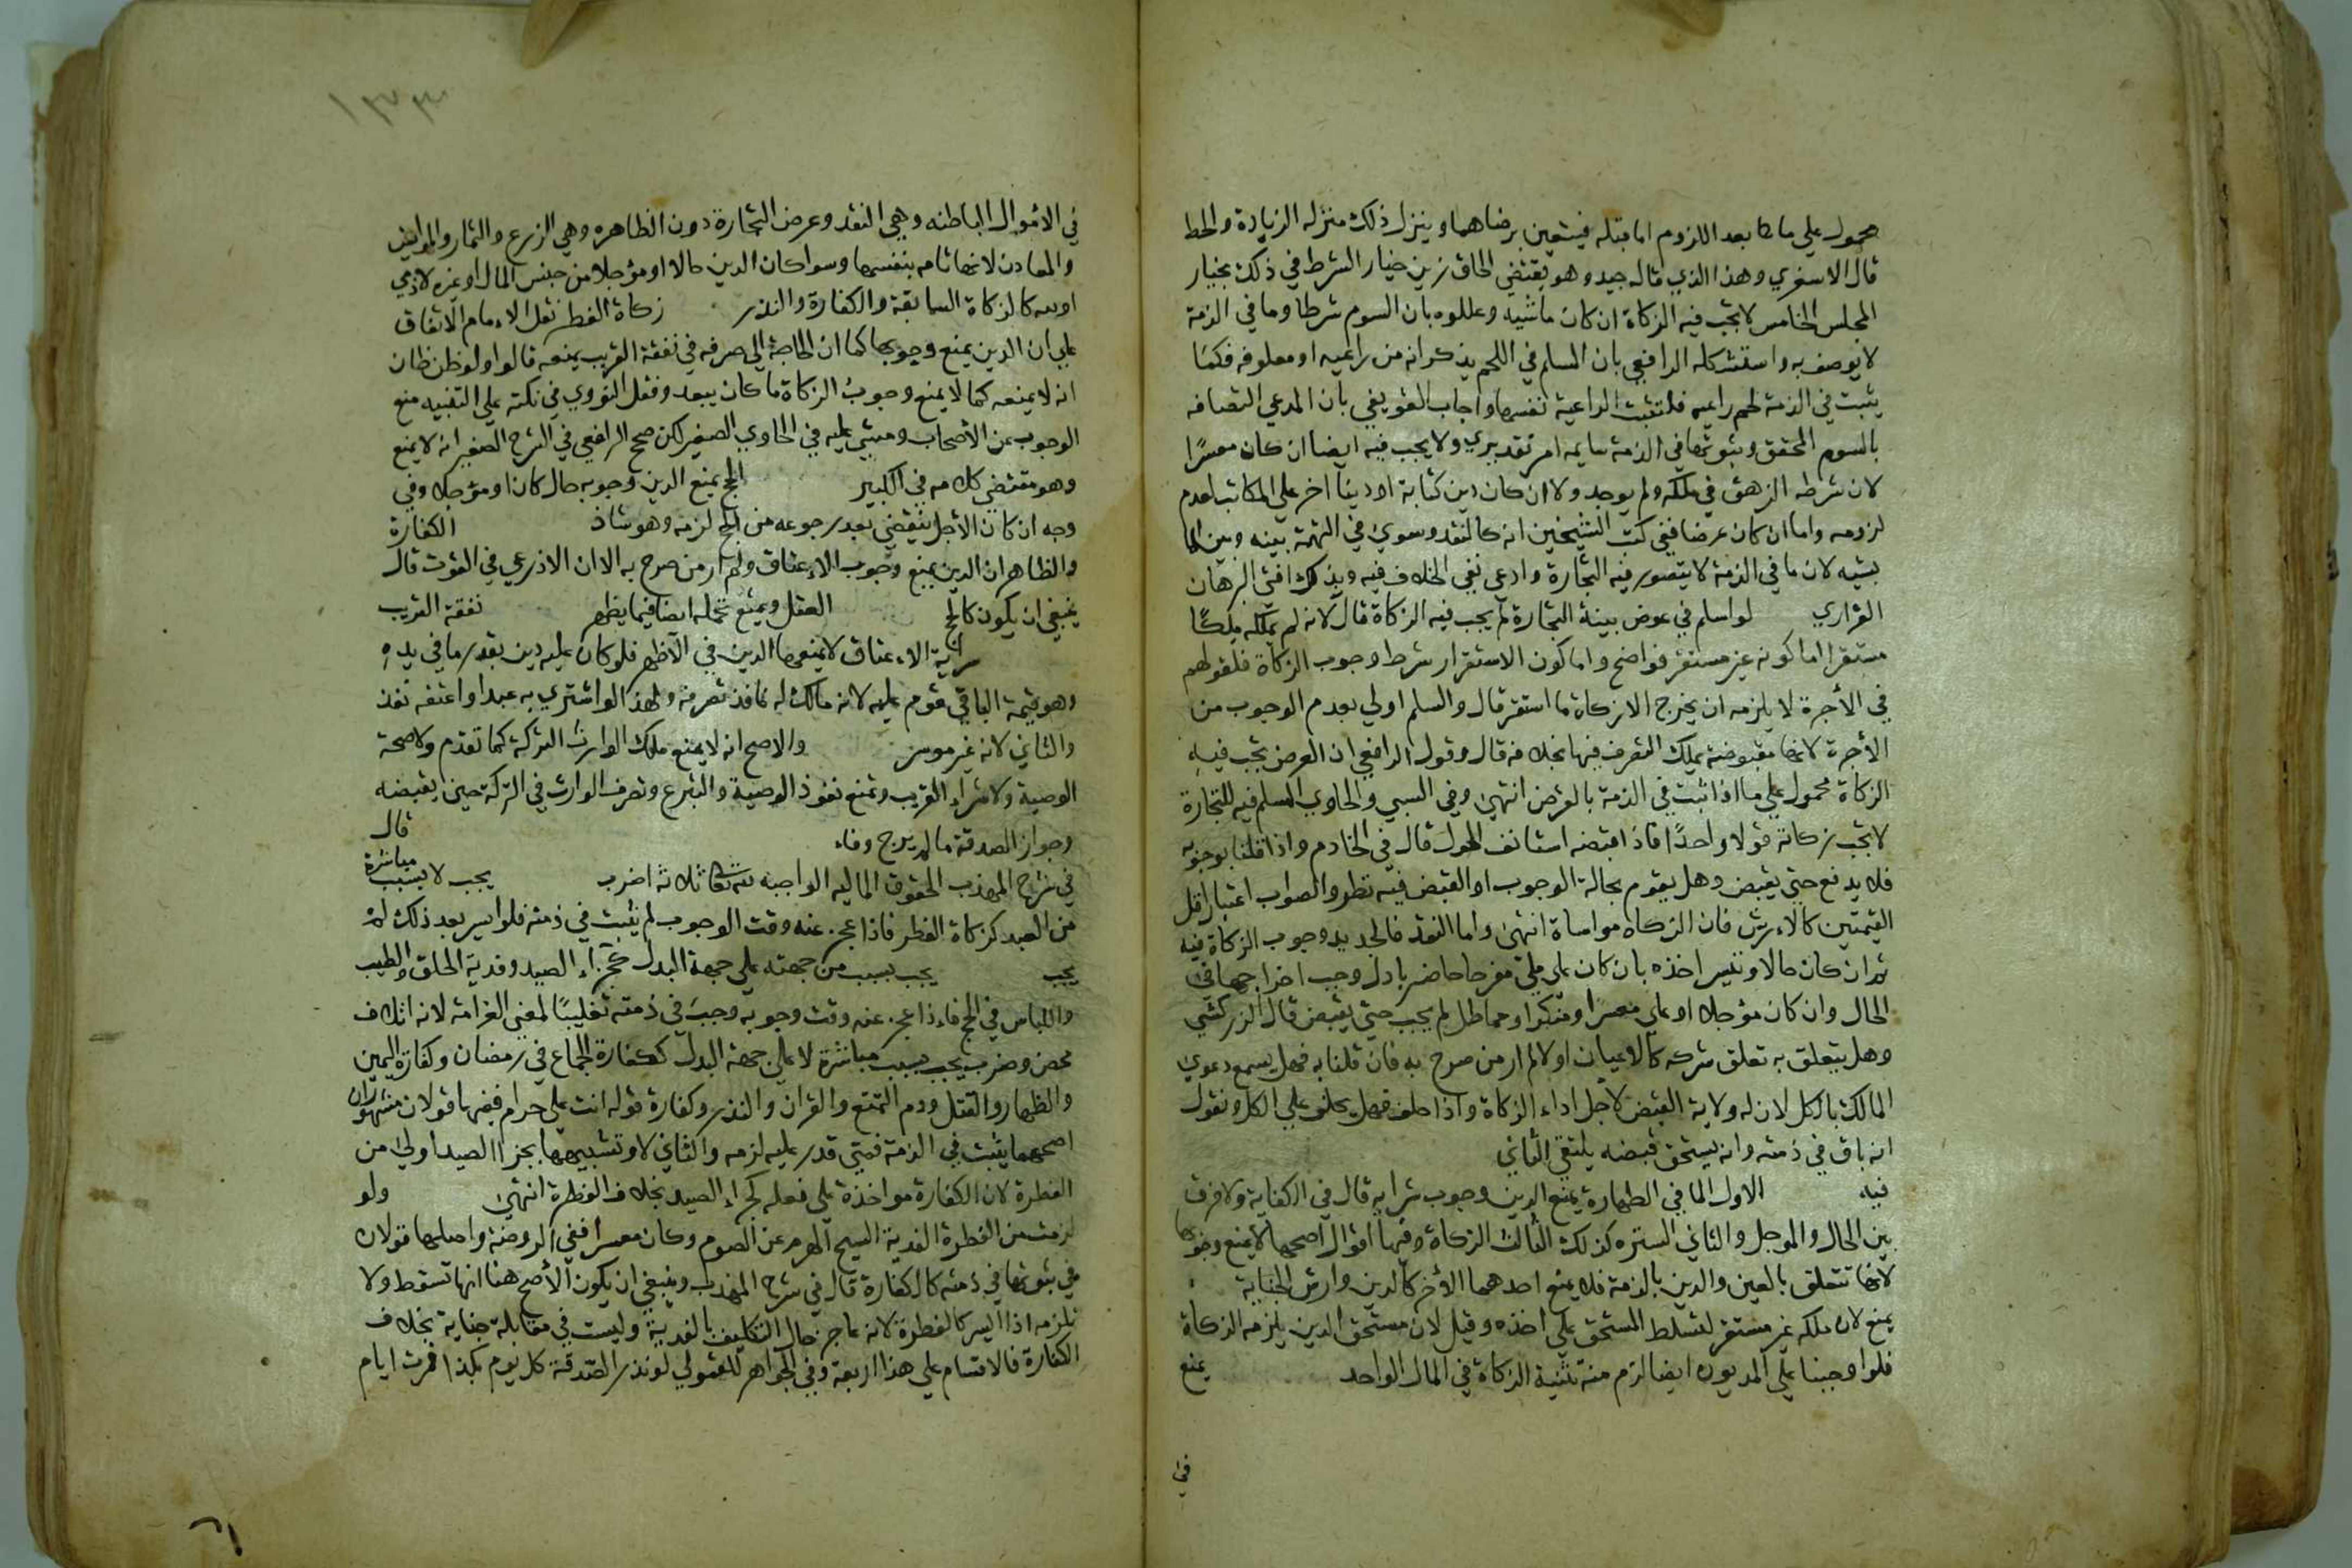 محمول علي ما كا بعد اللزوم اما قبله فيتعين برضاهما وينزل ذلك منزله الزيادة والحط
قال الاسنوي وهذا الذي قاله جيد وهو يقتضي الحاق زمن خيار الشرط في ذلك بخيار
المجلس الخامس لا تجب فيه الزكاة ان كان ماشيه وعللوه بان السوم شرطا وما في الذمة
لا يوصف به واستشكله الرافعي بان المسلم في اللحم يذكر انه من راعيه او معلوفه فكما
يثبت في الذمة لحم راعيه فلتثبت الراعية نفسها واجاب القونوي بان المدعي اتصافه
بالسوم المحقق وثبوتها في الذمة سايمه امر تقديري ولا يجب فيه ايضا ان كان معسرًا
لان شرطه الزهو في ملكه ولم يوجد ولا ان كان دين كتابة او دينا اخر علي المكاتب لعدم
لزومه واما ان كان عرضا ففي كتب الشيخين انه كالنقد وسوي في التتمة بينه وبين الما
شيه لان ما في الذمة لا يتصور فيه التجارة وادعي نفي الخلاف فيه وبذلك افتي البرهان
الفزاري لو اسلم في عوض بنية التجارة لم يجب فيه الزكاة قال لانه لم يملكه ملكًا
مستقرا اما كونه غير مستقر فواضح واما كون الاستقرار شرط وجوب الزكاة فلقولهم
في الأجرة لا يلزمه ان يخرج الا زكاة ما استقر قال والسلم اولي بعدم الوجوب من
الأجرة لانها مقبوضة يملك التصرف فيها بخلافه قال وقول الرافعي ان العرض تجب فيه
الزكاة محمول علي ما اذا ثبت في الذمة بالقرض انتهي وفي السبي والحاوي المسلم فيه للتجارة
لا تجب زكاته قولا واحدًا فاذا قبضه استانف الحول قال في الخادم واذا قلنا بوجوبه
فلا يدفع حتي يقبض وهل يقوم بحالة الوجوب او القبض فيه نظر والصواب اعتبار اقل
القيمتين كالارش فان الزكاه مواساة انتهي واما النقد فالجديد وجوب الزكاة فيه
ثم ان كان حالا وتيسر اخذه بان كان علي ملي مقر حاضر باذل وجب اخراجها في
الحال وان كان مؤجلا او علي معسر او منكر او مماطل لم يجب حتي يقبض قال الزركشي
وهل يتعلق به تعلق شركه كالاعيان او لا لم ار من صرح به فان قلنا به فهل يسمع دعوي
المالك بالكل لان له ولاية القبض لاجل اداء الزكاة واذا حلف فهل يحلف علي الكل ونقول
انه باق في ذمته وانه يستحق قبضه يلتقي الثاني
فيه الاول الما في الطهارة يمنع الدين وجوب شرايه قال في الكفاية ولا فرق
بين الحال والموجل والثاني الستره كذلك الثالث الزكاة وفيها اقوال اصحها لا يمنع وجوبها
لانها تتعلق بالعين والدين بالذمة فلا يمنع احدهما الأخر كالدين وارش الجناية
يمنع لان ملكه غير مستقر لتسلط المستحق علي اخذه وقيل لان مستحق الدين يلزمه الزكاة
فلو اوجبنا علي المديون ايضا لزم منه تثنية الزكاة في المال الواحد يمنع
في
١٣٣
في الاموال الباطنه وهي النقد وعرض التجارة دون الظاهره وهي الزرع والثمار والمواشي
والمعادن لانها نامه بنفسها وسوا كان الدين حالا او مؤجلا من جنس المال او غيره لادمي
او لله كالزكاة السابقة والكفارة والنذر زكاة الفطر نقل الامام الاتفاق
علي ان الدين يمنع وجوبها كما ان الحاجة الي صرفه في نفقة القريب يمنعه قالوا ولو ظن ظان
انه لا يمنعه كما لا يمنع وجوب الزكاة ما كان يبعد ونقل النووي في نكته علي التنبيه منع
الوجوب عن الأصحاب ومشي عليه في الحاوي الصغير لكن صحح الرافعي في الشرح الصغير انه لا يمنع
وهو مقتضي كلامه في الكبير الحج يمنع الدين وجوبه حالا كان او مؤجلا وفي
وجه ان كان الأجل ينقضي بعد رجوعه من الحج لزمه وهو شاذ الكفارة
والظاهر ان الدين يمنع وجوب الاعتاق ولم ار من صرح به الا ان الاذرعي في القوت قال
ينبغي ان يكون كالحج العقل ويمنع تحمله ايضا فيما يظهر نفقة القريب
سراية الاعتاق لا يمنعها الدين في الأظهر فلو كان عليه دين بقدر ما في يده
وهو قيمة الباقي قوم عليه لانه مالك له نافذ تصرفه ولهذا لو اشتري به عبدا واعتقه نفذ
والثاني لانه غير موسر والاصح انه لا يمنع ملك الوارث التركة كما تقدم ولا صحة
الوصية ولا شراء القريب ويمنع نفوذ الوصية والتبرع وتصرف الوارث في التركة حين يقبضه
وجواز الصدقة ما لم يرج وفاء قال
في شرح المهذب الحقوق الماليه الواجبه لله تعالى ثلاثة اضرب يجب لا بسبب مباشرة
من العبد كزكاة الفطر فاذا عجز عنه وقت الوجوب لم يثبت في ذمته فلو ايسر بعد ذلك لم
يجب يجب بسبب من جهته علي جهة البدل كجزاء الصيد وفدية الحلق والطيب
واللباس في الحج فاذا عجز عنه وقت وجوبه وجب في ذمته تغليبًا لمعني الغرامة لانه اتلاف
محض وضرب يجب بسبب مباشرة لا علي جهة البدل ككفارة الجماع في رمضان وكفارة اليمين
والظهار والقتل ودم التمتع والقران والنذر وكفارة قوله انت علي حرام ففيها قولان مشهوران
اصحهما يثبت في الذمة فمتي قدر عليه لزمه والثاني لا وتشبيهها بجزا الصيد اولي من
الفطرة لان الكفارة مواخذة علي فعله كجزاء الصيد بخلاف الفطرة انتهي ولو
لزمت من الفطرة الفدية الشيخ الهرم عن الصوم وكان معسرا ففي الروضة واصلها قولان
في ثبوتها في ذمته كالكفارة قال في شرح المهذب وينبغي ان يكون الأصح هنا انها تسقط ولا
تلزمه اذا ايسر كالفطرة لانه عاجز حال التكليف بالفدية وليست في مقابلة جناية بخلاف
الكفارة فالاقسام علي هذا اربعة وفي الجواهر للقمولي لو نذر الصدقة كل يوم بكذا فمرت ايام